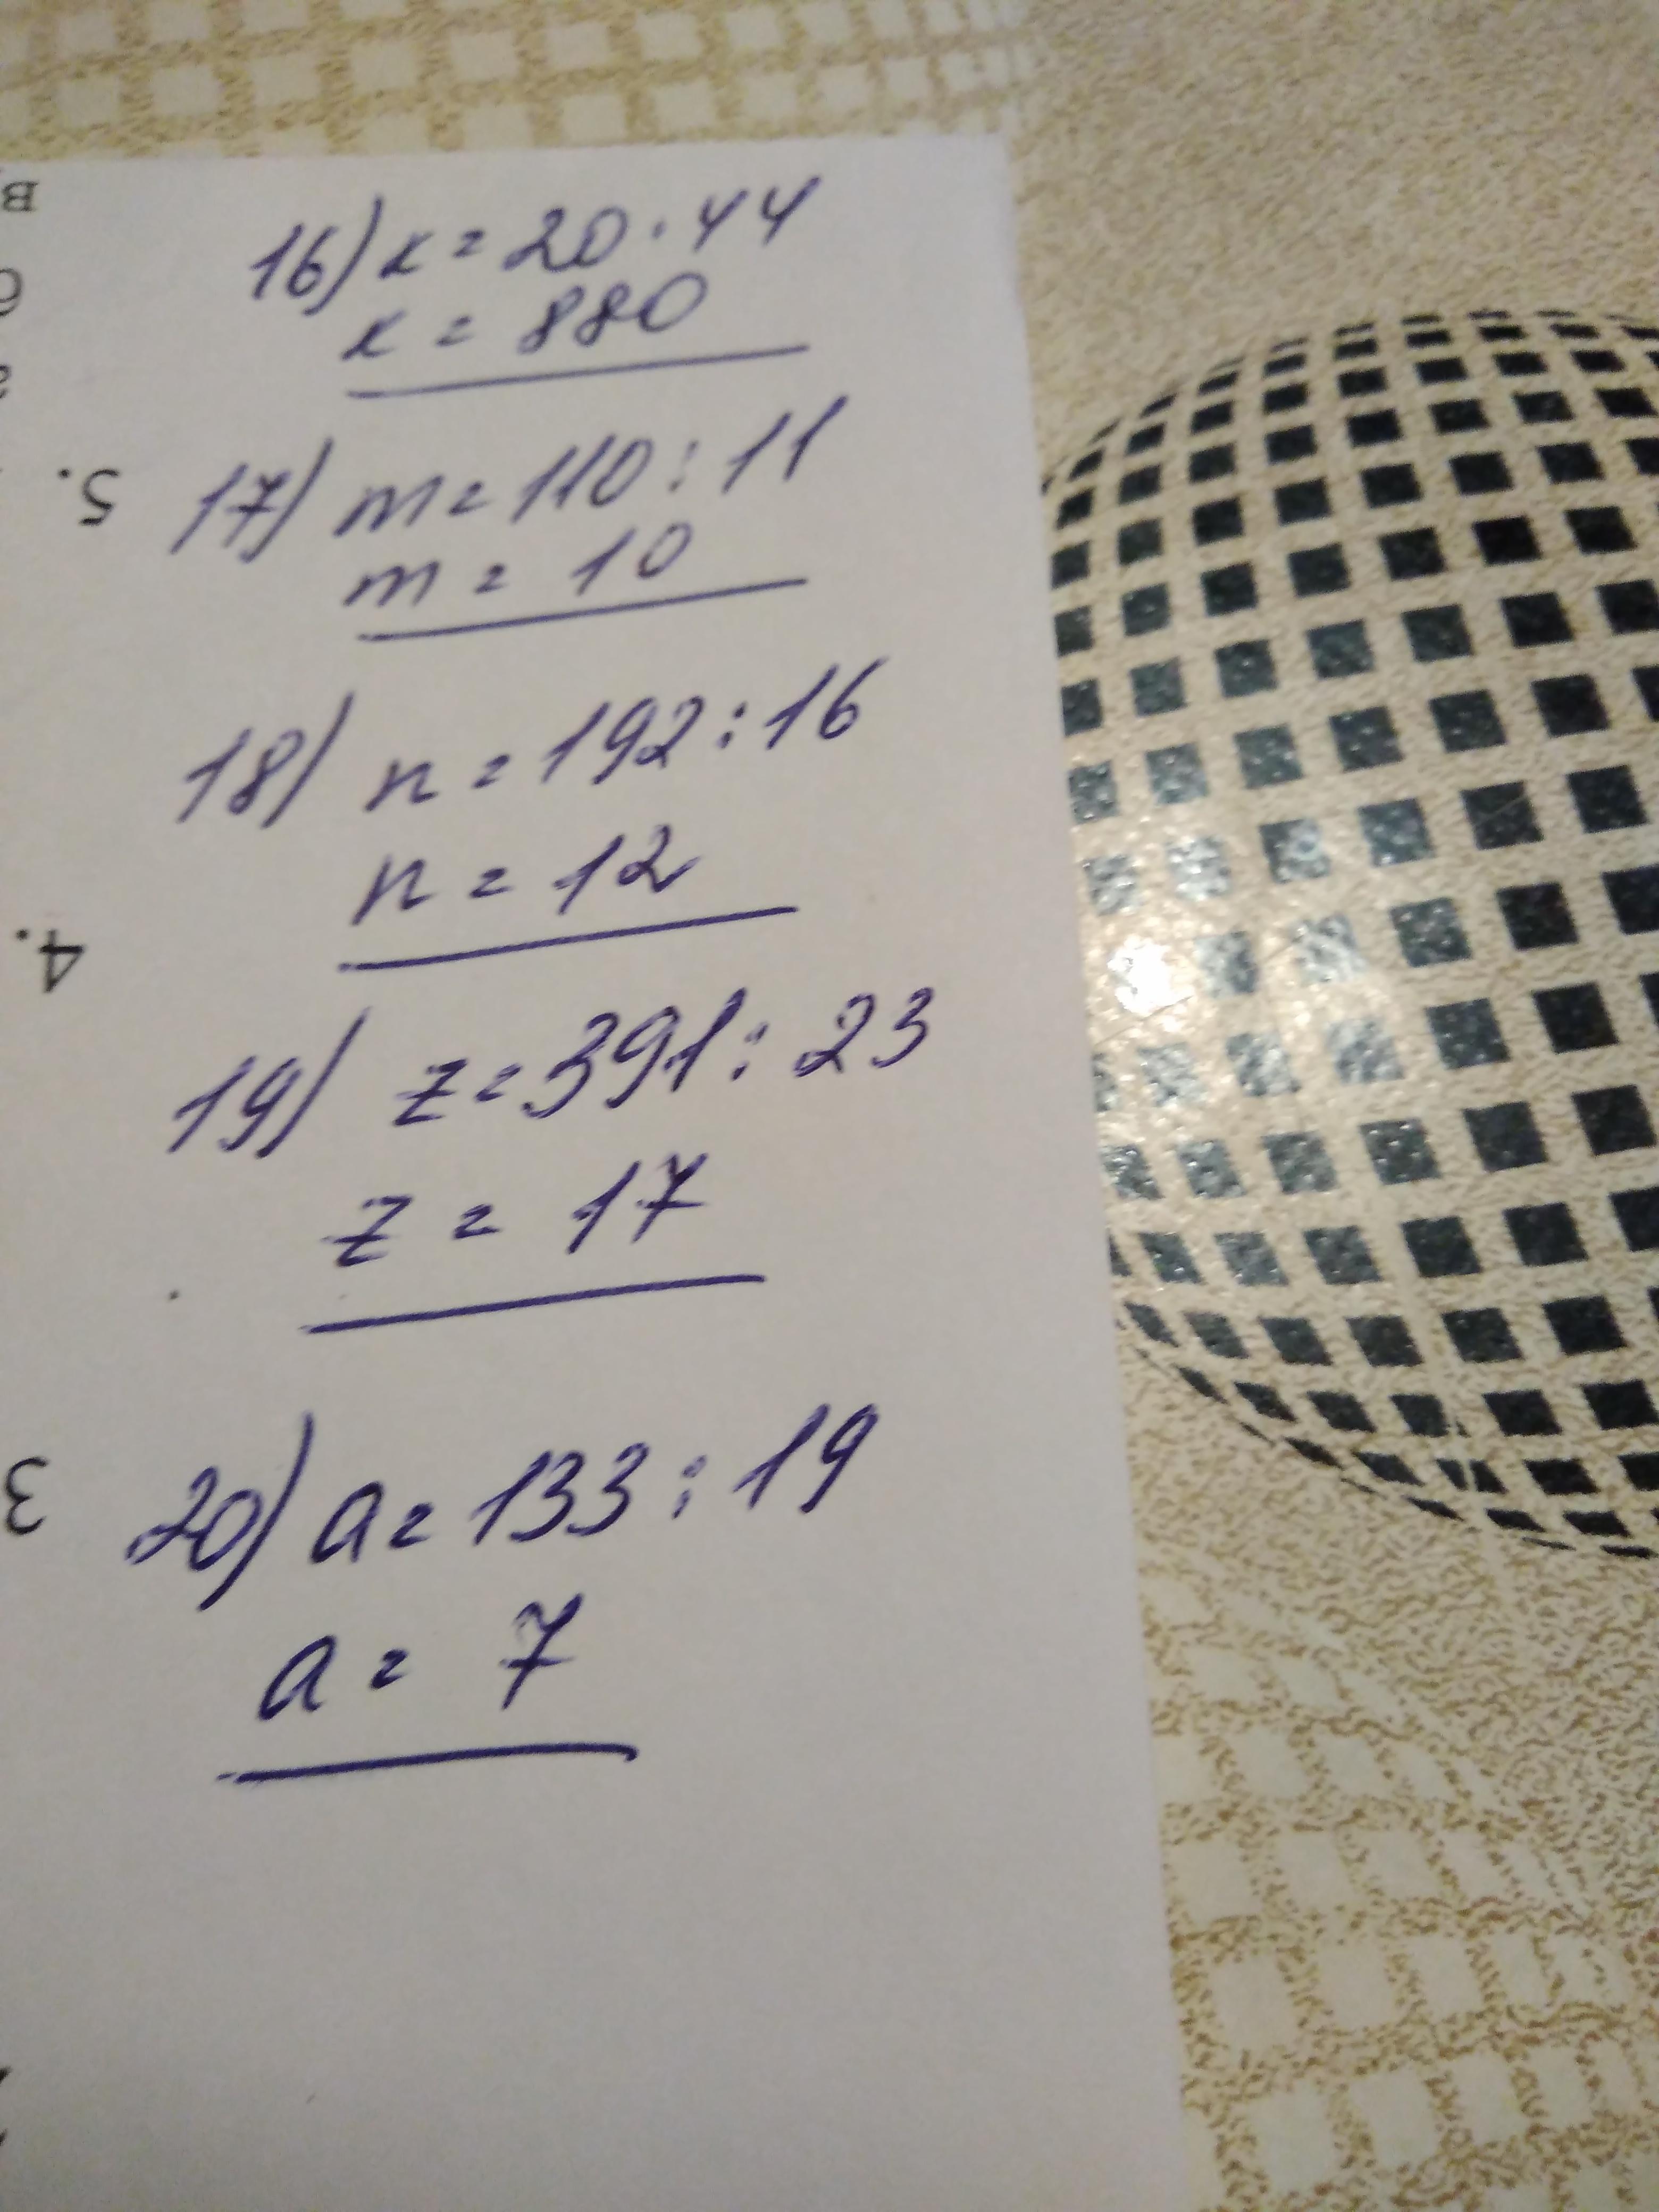 16) x = 20 · 44
x = 880
17) m = 110 : 11
m = 10
18) n = 192 : 16
n = 12
19) z = 391 : 23
z = 17
20) a = 133 : 19
a = 7
5.
4.
3